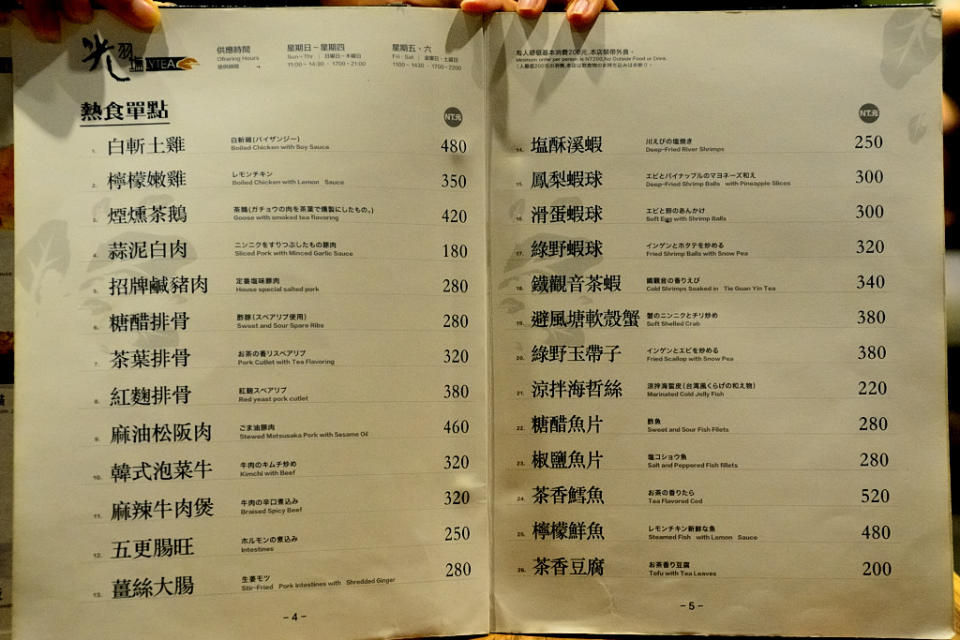 光羽塩
TEA
供應時間
Offering Hours
提供時間
星期日～星期四
Sun～Thr | 日曜日~木曜日
11:00~14:30・1700~21:00
星期五、六
Fri・Sat | 金曜日、土曜日
1100~14:30・1700~2200
每人最低基本消費200元,本店禁帶外食。
Minimum order per person is NT200,No Outside Food or Drink.
熱食單點
NT.元
1. 白斬土雞 白斬鶏(バイザンジー) 480
Boiled Chicken with Soy Sauca
2. 檸檬嫩雞 レモンチキン 350
Boiled Chicken with Lemon Sauce
3. 煙燻茶鵝 茶鵝(ガチョウの肉を茶葉で燻製にしたもの。) 420
Goose with smoked tea flavoring
4. 蒜泥白肉 ニンニクをすりつぶしたもの豚肉 180
Sliced Pork with Minced Garlic Sauce
5. 招牌鹹豬肉 定番塩味豚肉 280
House special salted pork
6. 糖醋排骨 酢豚(スペアリブ使用) 280
Sweet and Sour Spare Ribs
7. 茶葉排骨 お茶の香リスペアリブ 320
Pork Cutlet with Tea Flavoring
8. 紅麴排骨 紅麴スペアリブ 380
Red yeast pork cutlet
9. 麻油松阪肉 ごま油豚肉 460
Stewed Matsusaka Pork with Sesame Oil
10. 韓式泡菜牛 牛肉のキムチ炒め 320
Kimchi with Beef
11. 麻辣牛肉煲 牛肉の辛口煮込み 320
Braised Spicy Beef
12. 五更腸旺 ホルモンの煮込み 250
Intestines
13. 薑絲大腸 生姜モツ 280
Stir-Fried Pork Intestines with Shredded Ginger
-4-
NT.元
14. 塩酥溪蝦 川えびの塩焼き 250
Deep-Fried River Shrimps
15. 鳳梨蝦球 エビとパイナップルのマヨネーズ和え 300
Deep-Fried Shrimp Balls with Pineapple Slices
16. 滑蛋蝦球 エビと卵のあんかけ 300
Soft Egg with Shrimp Balls
17. 綠野蝦球 インゲンとホタテを炒める 320
Fried Shrimp Balls with Snow Pea
18. 鐵觀音茶蝦 鐵觀音の香りえび 340
Cold Shrimps Soaked in Tie Guan Yin Tea
19. 避風塘軟殼蟹 蟹のニンニクとチリ炒め 380
Soft Shelled Crab
20. 綠野玉帶子 インゲンとエビを炒める 380
Fried Scallop with Snow Pea
21. 涼拌海哲絲 涼拌海蜇皮(台湾風くらげの和え物) 220
Marinated Cold Jelly Fish
22. 糖醋魚片 酢魚 280
Sweet and Sour Fish Filets
23. 椒鹽魚片 塩コショウ魚 280
Salt and Peppered Fish fillets
24. 茶香鱈魚 お茶の香りたら 520
Tea Flavored Cod
25. 檸檬鮮魚 レモンチキン新鮮な魚 480
Steamed Fish with Lemon Sauce
26. 茶香豆腐 お茶香り豆腐 200
Tofu with Tea Leaves
-5-